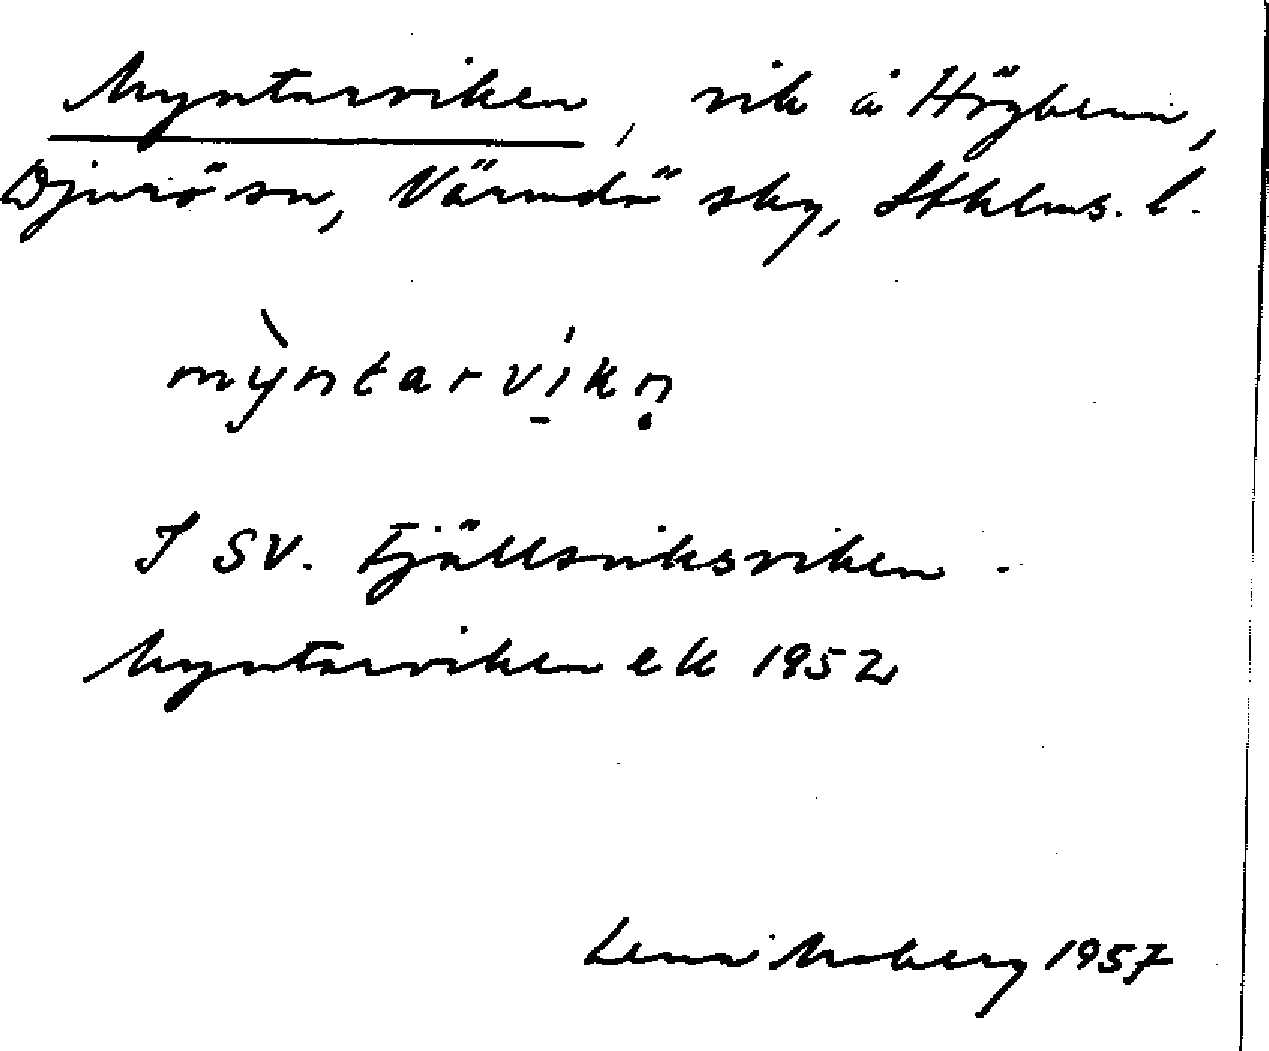 Myntarviken, vik å Högbenn,
Djurö sn, Värmdö sky, Sthlms. l.
mỳntarvíkṇ
I SV. Fjällsviksviken.
Myntarviken ek 1952
Lenn Moberg 1957